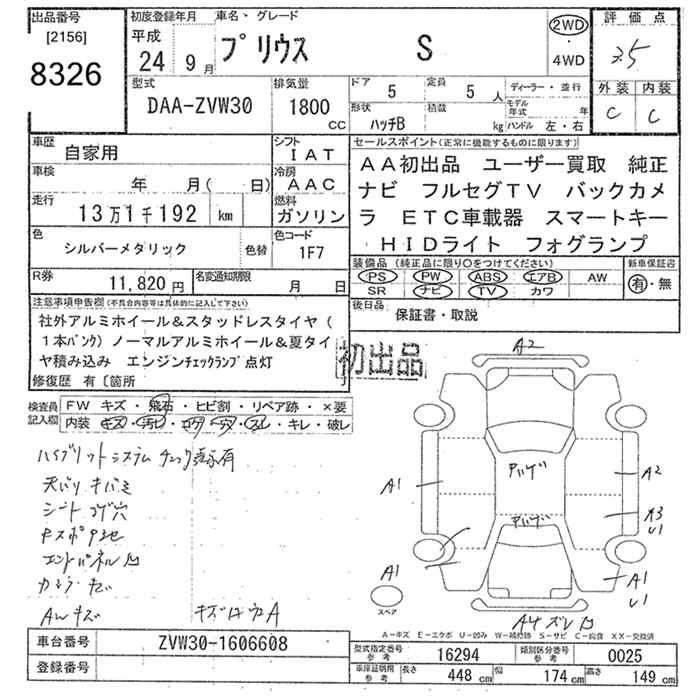 出品番号
[2156]
8326
初度登録年月
平成
24 9月
車名・グレード
プリウス S
2WD
・
4WD
評価点
3.5
外装 内装
C C
型式
DAA-ZVW30
排気量
1800
CC
ドア
5
定員
5人
形状
ハッチB
積載
kg
ディーラー・並行
モデル年式 年
ハンドル 左・右
車歴
自家用
シフト
IAT
車検
年 月( 日)
冷房
AAC
走行
13万1千192 km
燃料
ガソリン
色
シルバーメタリック
色替
色コード
1F7
R券
11,820円
名変通知期限
月 日
セールスポイント(正常に機能するものに限ります)
AA初出品 ユーザー買取 純正
ナビ フルセグTV バックカメ
ラ ETC車載器 スマートキー
HIDライト フォグランプ
装備品(純正品に限り○をつけてください)
PS PW ABS エアB AW
SR ナビ TV カワ
新車保証書
有・無
後日品
保証書・取説
注意事項申告欄(不具合内容等は具体的に記入して下さい)
社外アルミホイール&スタッドレスタイヤ(
1本パンク)ノーマルアルミホイール&夏タイ
ヤ積み込み エンジンチェックランプ点灯
修復歴 有〔箇所 〕
初出品
検査員記入欄
FW キズ・飛石・ヒビ割・リペア跡・×要
内装 キズ・汚レ・コゲ・穴・スレ・キレ・破レ
ハイブリットシステム チェック表示有
天バリ キバミ
シート コゲ穴
エンドパネル凹
AWキズ
A2
A1
A2
A3
U1
A1
U1
A1
スペア
A4 ズレ 凹
A-キズ E-エクボ U-凹み W-補修跡 S-サビ C-腐食 XX-交換済
車台番号
ZVW30-1606608
登録番号
型式指定番号
参考
16294
類別区分番号
参考
0025
車庫証明用
参考
長さ 448cm 幅 174cm 高さ 149cm